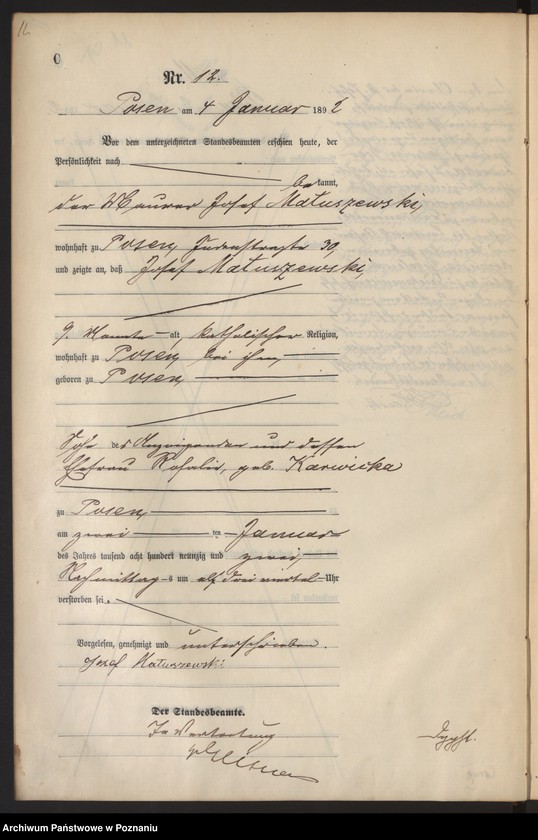 12.
C
Nr. 12.
Posen am 4 Januar 1892
Vor dem unterzeichneten Standesbeamten erschien heute, der
Persönlichkeit nach
bekannt,
der Maurer Josef Matuszewski,
wohnhaft zu Posen, Judenstraße 30,
und zeigte an, daß Josef Matuszewski,
9. Monate alt, katholischer Religion,
wohnhaft zu Posen, bei ihm,
geboren zu Posen,
Sohn des Anzeigenden und dessen
Ehefrau Rosalie, geb. Karwicka
zu Posen,
am zwei ten Januar
des Jahres tausend acht hundert neunzig und zwei,
Nachmittags um elf drei viertel Uhr
verstorben sei.
Vorgelesen, genehmigt und unterschrieben.
Josef Matuszewski
Der Standesbeamte.
In Vertretung
Archiwum Państwowe w Poznaniu